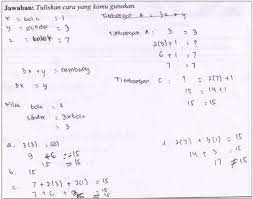 Jawaban: Tuliskan cara yang kamu gunakan.
x = bola = 1
y = silinder = 3
z = balok = 7
Timbangan A = 3x + y
Timbangan A : 3 = 3
2(3)+1 = 7
6 + 1 = 7
7 = 7
3x + y = seimbang
3x = y
Timbangan C : 15 = 2(7)+1
15 = 14+1
15 = 15
Nilai bola = 1
silinder = 3 x bola
= 3
a. 3(3) = 15
9 ≠ 15
b.
c. 7 + 2(3) + 2(1) = 15
7 + 6 + 2 = 15
d. 2(7) + 3(1) = 15
14 + 3 = 15
17 ≠ 15